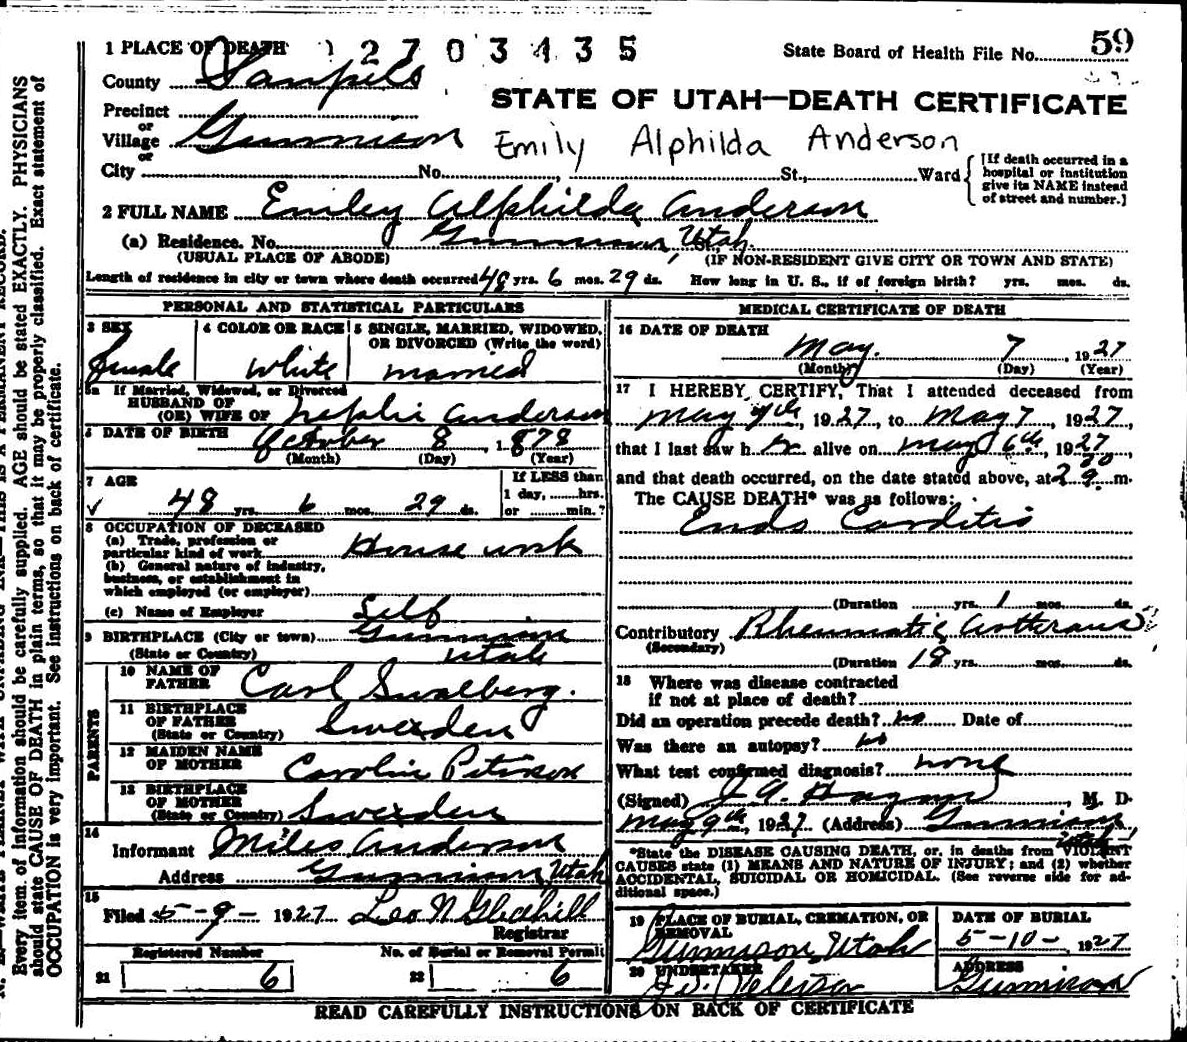 1 PLACE OF DEATH 2703435 State Board of Health File No. 59
County Sanpete
STATE OF UTAH—DEATH CERTIFICATE
Precinct
or
Village Gunnison Emily Alphilda Anderson
or
City No. St., Ward
[If death occurred in a hospital or institution give its NAME instead of street and number.]
2 FULL NAME Emiley Alphilda Anderson
(a) Residence. No. Gunnison, Utah
(USUAL PLACE OF ABODE) (IF NON-RESIDENT GIVE CITY OR TOWN AND STATE)
Length of residence in city or town where death occurred 48 yrs. 6 mos. 29 ds. How long in U. S., if of foreign birth? yrs. mos. ds.
PERSONAL AND STATISTICAL PARTICULARS
3 SEX 4 COLOR OR RACE 5 SINGLE, MARRIED, WIDOWED,
OR DIVORCED (Write the word)
female white married
5a If Married, Widowed, or Divorced
HUSBAND OF
(OR) WIFE OF Anderson
6 DATE OF BIRTH October 8 1878
(Month) (Day) (Year)
7 AGE If LESS than
1 day, hrs.
48 yrs. 6 mos. 29 ds. or min.?
8 OCCUPATION OF DECEASED
(a) Trade, profession or
particular kind of work House work
(b) General nature of industry,
business, or establishment in
which employed (or employer)
(c) Name of Employer Self
9 BIRTHPLACE (City or town) Gunnison
(State or Country) Utah
PARENTS
10 NAME OF
FATHER Carl Swalberg.
11 BIRTHPLACE
OF FATHER
(State or Country) Sweden
12 MAIDEN NAME
OF MOTHER Caroline Peterson
13 BIRTHPLACE
OF MOTHER
(State or Country) Sweden
14
Informant Miles Anderson
Address Gunnison, Utah
15
Filed 5-9- 1927 Leo N Gledhill
Registrar
Registered Number No. of Burial or Removal Permit
21 6 22 6
MEDICAL CERTIFICATE OF DEATH
16 DATE OF DEATH
May. 7, 1927
(Month) (Day) (Year)
17 I HEREBY CERTIFY, That I attended deceased from
May, 1927, to May 7, 1927
that I last saw h er alive on May 6th, 1927,
and that death occurred, on the date stated above, at m.
The CAUSE DEATH* was as follows:
Endo Carditis
(Duration yrs. 1 mos. ds.
Contributory Rheumatic
(Secondary)
(Duration 18 yrs. mos. ds.
18 Where was disease contracted
if not at place of death?
Did an operation precede death? no Date of
Was there an autopsy? no
What test confirmed diagnosis? none
(Signed) J A Hagan, M. D.
May 9th, 1927 (Address) Gunnison, Utah
*State the DISEASE CAUSING DEATH, or, in deaths from VIOLENT
CAUSES state (1) MEANS AND NATURE OF INJURY; and (2) whether
ACCIDENTAL, SUICIDAL OR HOMICIDAL. (See reverse side for ad-
ditional space.)
19 PLACE OF BURIAL, CREMATION, OR
REMOVAL
Gunnison, Utah
DATE OF BURIAL
5-10-, 1927
20 UNDERTAKER
ADDRESS
Gunnison
READ CAREFULLY INSTRUCTIONS ON BACK OF CERTIFICATE
Every item of information should be carefully supplied. AGE should be stated EXACTLY. PHYSICIANS
should state CAUSE OF DEATH in plain terms, so that it may be properly classified. Exact statement of
OCCUPATION is very important. See instructions on back of certificate.